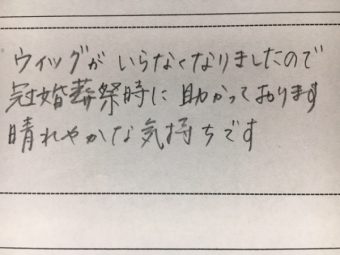 ウィッグが いらなくなりましたので
冠婚葬祭時に 助かっております
晴れやかな気持ちです